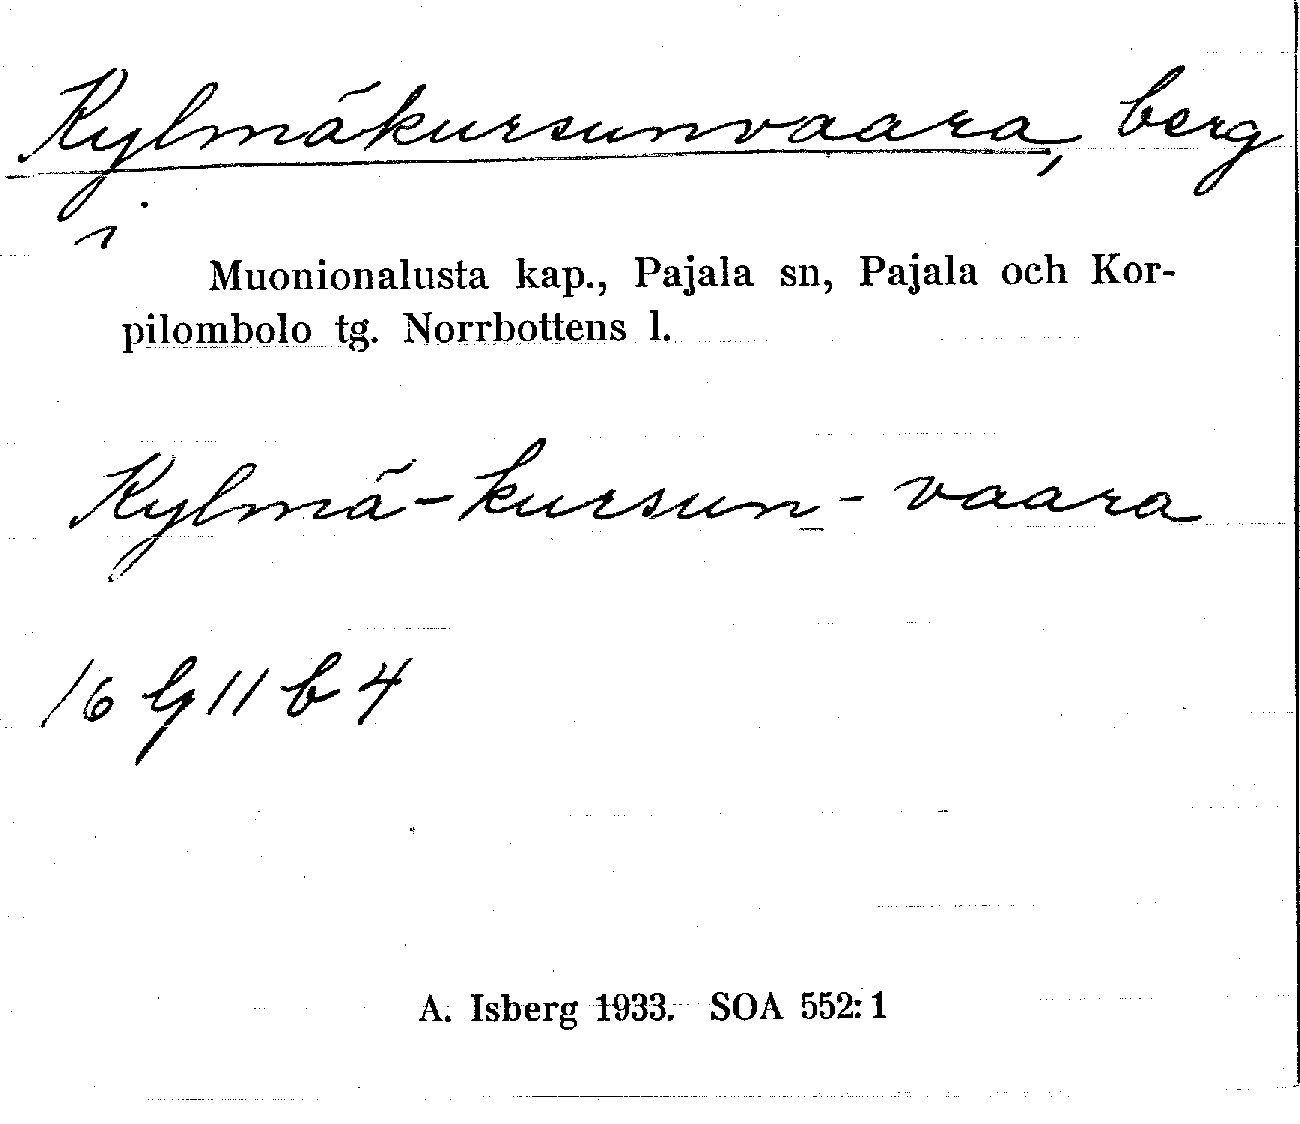 Kylmäkursunvaara, berg
i
Muonionalusta kap., Pajala sn, Pajala och Kor-
pilombolo tg. Norrbottens l.
Kylmä-kursun-vaara
16 lg 11 b 4
A. Isberg 1933. SOA 552:1